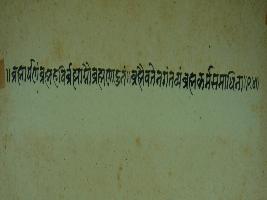 ॥ब्रह्मार्पणंब्रह्महविर्ब्रह्माग्नौब्रह्मणाहुतं॥ब्रह्मैवतेनगंतव्यंब्रह्मकर्मसमाधिना॥२४॥